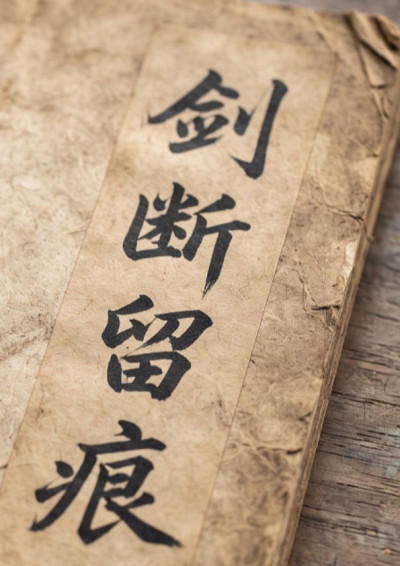 剑断留痕